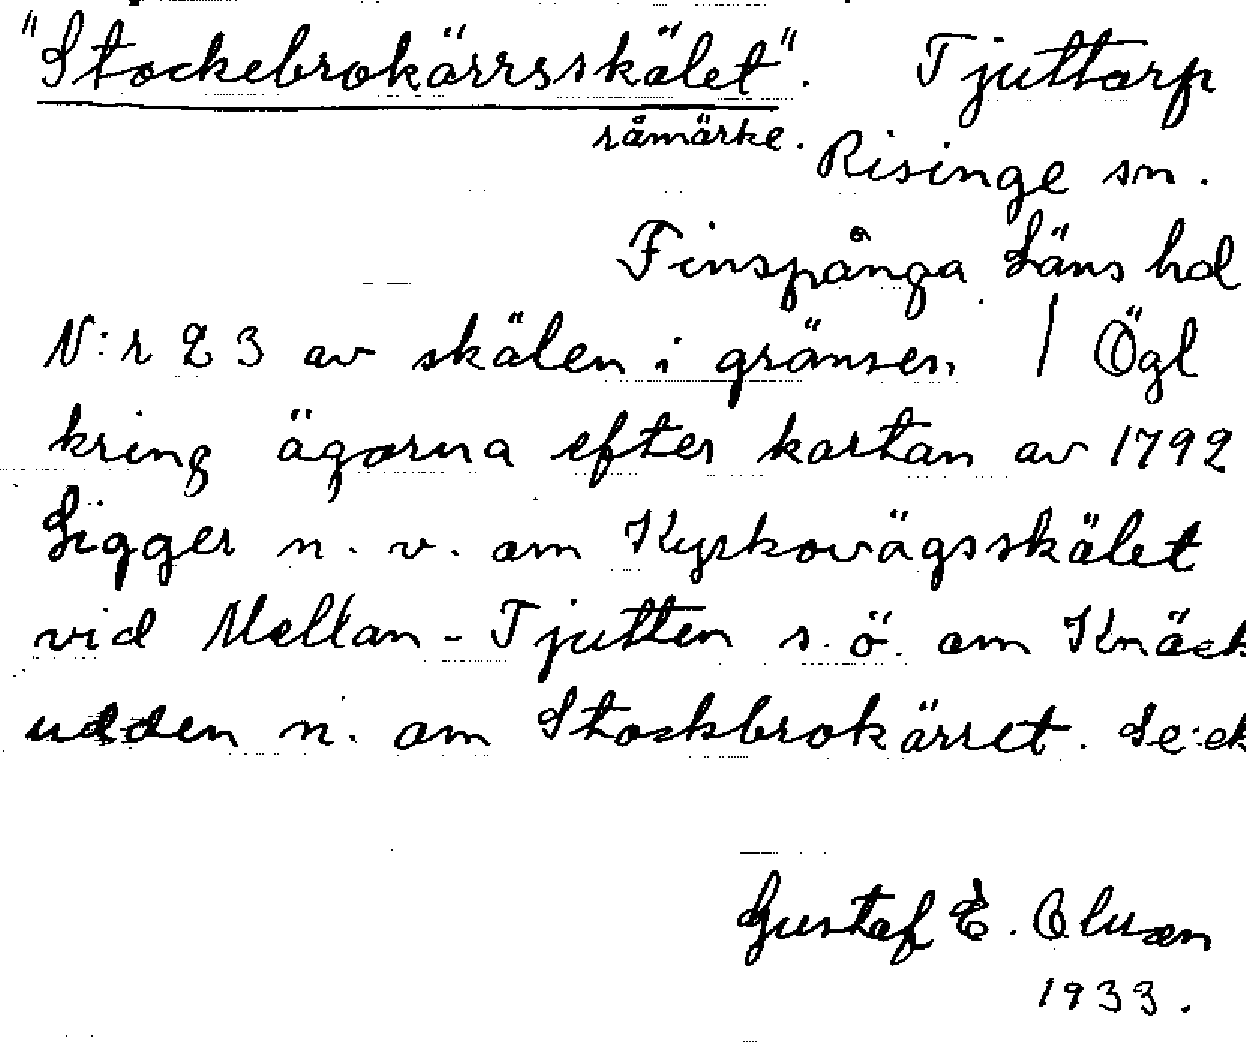 "Stockebrokärrsskälet". Tjuttorp
råmärke.
Risinge sn.
Finspånga Läns hd
N:r 23 av skälen i gränsen / Ögl
kring ägorna efter kartan av 1792
Ligger n. v. om Kyrkovägsskälet
vid Mellan-Tjutten s. ö. om Knäck
udden n. om Stockbrokärret.
Gustaf E.
1933.